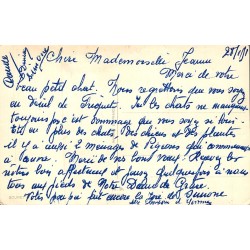 28/1/51
Chère Mademoiselle Jeanne
Merci de votre
beau petit chat. Nous regrettons que vous soyez
en deuil de Friquet. Ici les chats ne manquent
toujours pas c'est dommage que vous soyez si loin.
de plus des chats, des chiens et des plantes
il y a aussi 2 ménages de pigeons qui commencent
à couver. Merci de vos bons vœux. Recevez les
nôtres bien affectueux et pensez quelquefois à nous
tous aux pieds de Notre Dame de Grâce.
Votre fait encore la joie de Simone